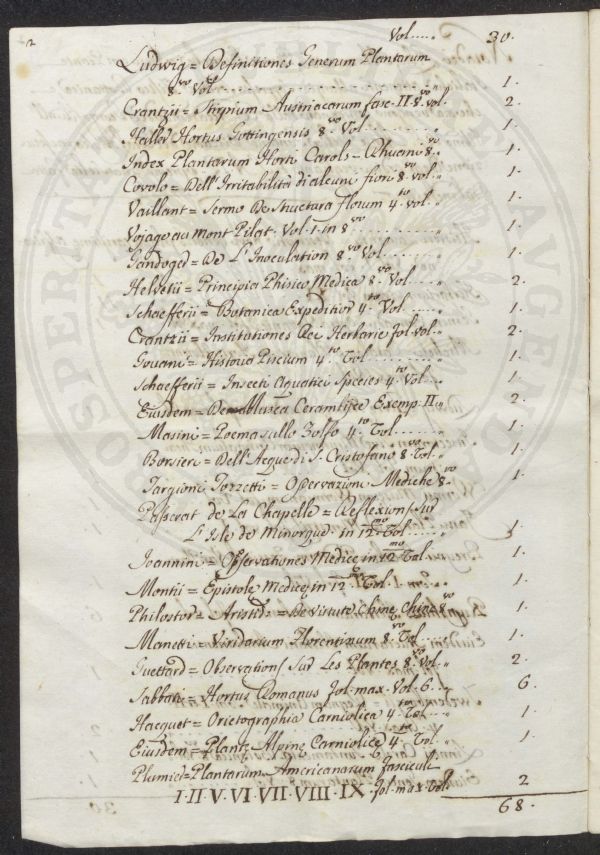 2 Vol..... 30.
Ludwig = Definitiones Generum Plantarum
8.vo Vol ........................ „ 1.
Crantzii = Stirpium Austriacarum fasc. II. 8.vo vol. 2.
Haller Hortus Gottingensis 8.vo Vol ....... „ 1.
Index Plantarum Horti Carols- 8.vo „ 1.
Covolo = Dell' Irritabilità di alcuni fiori 8.vo vol. „ 1.
Vaillant = Sermo De Structura florum 4.to vol. „ 1.
Vojage au mont Pilat. Vol. 1. in 8.vo ......... „ 1.
= De L' Inoculation 8.vo Vol ...... „ 1.
Helvetii = Principia Phisico Medica 8.vo Vol .... „ 2.
Schaefferii = Botanica Expeditior 4.to Vol ..... „ 1.
Crantzii = Institutiones Rei Herbarie fol. vol. „ 2.
Gouani = Historia Piscium 4.to Tol ......... „ 1.
Schaefferii = Insecti Aquatici Species 4.to Vol. „ 1.
Eiusdem = De Musca Cerambice Exemp. II. „ 2.
Masini = Poema sullo Zolfo 4.to Tol ...... „ 1.
Borsieri = Dell' Acque di S. Cristofano 8.vo Tol. „ 1.
Targioni Tozzetti = Opervazioni Mediche 8.vo „ 1.
Passerat de La Chapelle = Reflexions Sur
L' Isle de Minorque in 12.mo Tol ...... „ 1.
Joannini = Observationes Medice in 12.mo Tol.. „ 1.
Montii = Epistole Medice in 12. Tol. „ 1.
= De Virtute 8.vo „ 1.
Manetti = Viridarium Florentinum 8.vo Tol .. „ 1.
Guettard = Observations Sur Les Plantes 8.vo Vol. „ 2.
Sabbati = Hortus Romanus fol. max. Vol. 6. ... „ 6.
Hacquet = Orictographia Carniolica 4.to Tol .. „ 1.
Eiusdem = Plante Alpine Carniolice 4.to Tol . „ 1.
Plumier = Plantarum Americanarum Fasciculi
I. II. V. VI. VII. VIII. IX. fol. max. Vol. 2
68.